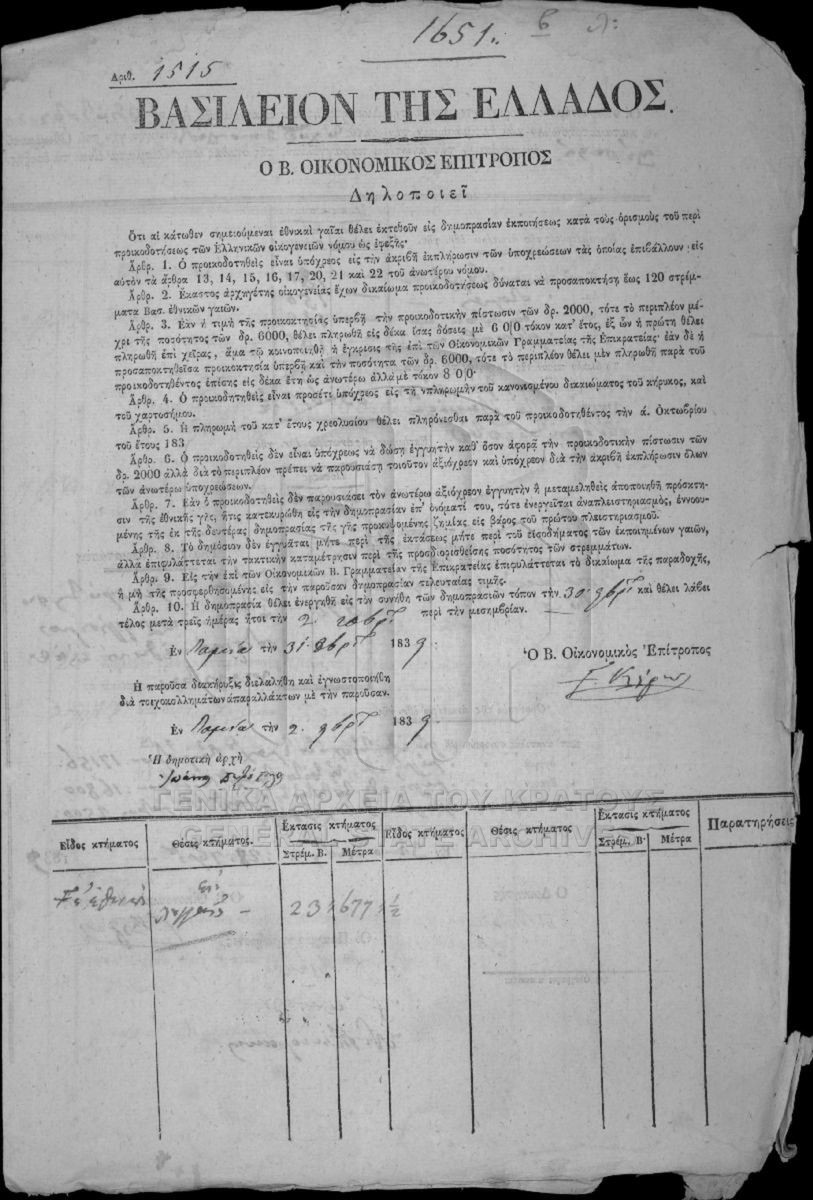 1651.
Ἀριθ. 1515
ΒΑΣΙΛΕΙΟΝ ΤΗΣ ΕΛΛΑΔΟΣ.
Ο Β. ΟΙΚΟΝΟΜΙΚΟΣ ΕΠΙΤΡΟΠΟΣ
Δηλοποιεῖ
Ὅτι αἱ κάτωθεν σημειούμεναι ἐθνικαὶ γαῖαι θέλει ἐκτεθοῦν εἰς δημοπρασίαν ἐκποιήσεως κατὰ τοὺς ὁρισμοὺς τοῦ περὶ
προικοδοτήσεως τῶν Ἑλληνικῶν οἰκογενειῶν νόμου ὡς ἐφεξῆς·
Ἄρθρ. 1. Ὁ προικοδοτηθεὶς εἶναι ὑπόχρεος εἰς τὴν ἀκριβῆ ἐκπλήρωσιν τῶν ὑποχρεώσεων τὰς ὁποίας ἐπιβάλλουν εἰς
αὐτὸν τὰ ἄρθρα 13, 14, 15, 16, 17, 20, 21 καὶ 22 τοῦ ἀνωτέρω νόμου.
Ἄρθρ. 2. Ἕκαστος ἀρχηγέτης οἰκογενείας ἔχων δικαίωμα προικοδοτήσεως δύναται νὰ προσαποκτήσῃ ἕως 120 στρέμ-
ματα Βασ. ἐθνικῶν γαιῶν.
Ἄρθρ. 3. Ἐὰν ἡ τιμὴ τῆς προικοκτησίας ὑπερβῇ τὴν προικοδοτικὴν πίστωσιν τῶν δρ. 2000, τότε τὸ περιπλέον μέ-
χρι τῆς ποσότητος τῶν δρ. 6000, θέλει πληρωθῆ εἰς δέκα ἴσας δόσεις μὲ 6 0|0 τόκον κατ' ἔτος, ἐξ ὧν ἡ πρώτη θέλει
πληρωθῆ ἐπὶ χεῖρας, ἅμα τῷ κοινοποιηθῇ ἡ ἔγκρισις τῆς ἐπὶ τῶν Οἰκονομικῶν Γραμματείας τῆς Ἐπικρατείας· ἐὰν δὲ ἡ
προσαποκτηθεῖσα προικοκτησία ὑπερβῇ καὶ τὴν ποσότητα τῶν δρ. 6000, τότε τὸ περιπλέον θέλει μὲν πληρωθῆ παρὰ τοῦ
προικοδοτηθέντος ἐπίσης εἰς δέκα ἔτη ὡς ἀνωτέρω ἀλλὰ μὲ τόκον 8 0|0·
Ἄρθρ. 4. Ὁ προικοδοτηθεὶς εἶναι προσέτι ὑπόχρεος εἰς τὴν πληρωμὴν τοῦ κανονισμένου δικαιώματος τοῦ κήρυκος, καὶ
τοῦ χαρτοσήμου.
Ἄρθρ. 5. Ἡ πληρωμὴ τοῦ κατ' ἔτους χρεολυσίου θέλει πληρόνεσθαι παρὰ τοῦ προικοδοτηθέντος τὴν ά. Ὀκτωβρίου
τοῦ ἔτους 183
Ἄρθρ. 6. Ὁ προικοδοτηθεὶς δὲν εἶναι ὑπόχρεως νὰ δώσῃ ἐγγυητὴν καθ' ὅσον ἀφορᾷ τὴν προικοδοτικὴν πίστωσιν τῶν
δρ. 2000 ἀλλὰ διὰ τὸ περιπλέον πρέπει νὰ παρουσιάσῃ τοιοῦτον ἀξιόχρεον καὶ ὑπόχρεον διὰ τὴν ἀκριβῆ ἐκπλήρωσιν ὅλων
τῶν ἀνωτέρω ὑποχρεώσεων.
Ἄρθρ. 7. Ἐὰν ὁ προικοδοτηθεὶς δὲν παρουσιάσει τὸν ἀνωτέρω ἀξιόχρεον ἐγγυητὴν ἢ μεταμεληθεὶς ἀποποιηθῇ πρόσκτη-
σιν τῆς ἐθνικῆς γῆς, ἥτις κατεκυρώθη εἰς τὴν δημοπρασίαν ἐπ' ὀνόματί του, τότε ἐνεργεῖται ἀναπλειστηριασμὸς, ἐννοου-
μένης τῆς ἐκ τῆς δευτέρας δημοπρασίας τῆς γῆς προκυψομένης ζημίας εἰς βάρος τοῦ πρώτου πλειστηριασμοῦ.
Ἄρθρ. 8. Τὸ δημόσιον δὲν ἐγγυᾶται μήτε περὶ τῆς ἐκτάσεως μήτε περὶ τοῦ εἰσοδήματος τῶν ἐκποιημένων γαιῶν,
ἀλλὰ ἐπιφυλάττεται τὴν τακτικὴν καταμέτρησιν περὶ τῆς προσδιορισθείσης ποσότητος τῶν στρεμμάτων.
Ἄρθρ. 9. Εἰς τὴν ἐπὶ τῶν Οἰκονομικῶν Β. Γραμματείαν τῆς Ἐπικρατείας ἐπιφυλάττεται τὸ δικαίωμα τῆς παραδοχῆς,
ἢ μὴ τῆς προσφερθησομένης εἰς τὴν παροῦσαν δημοπρασίαν τελευταίας τιμῆς.
Ἄρθρ. 10. Ἡ δημοπρασία θέλει ἐνεργηθῆ εἰς τὸν συνήθη τῶν δημοπρασιῶν τόπον τὴν 30 καὶ θέλει λάβει
τέλος μετὰ τρεῖς ἡμέρας ἤτοι τὴν 2. περὶ τὴν μεσημβρίαν.
Ἐν Λαμία τὴν 31 1839.
Ὁ Β. Οἰκονομικὸς Ἐπίτροπος
Ἡ παροῦσα διακήρυξις διελαλήθη καὶ ἐγνωστοποιήθη
διὰ τοιχοκολλημάτων ἀπαραλλάκτων μὲ τὴν παροῦσαν.
Ἐν Λαμία τὴν 2. 1839.
Ἡ δημοτικὴ ἀρχὴ
ΓΕΝΙΚΑ ΑΡΧΕΙΑ ΤΟΥ ΚΡΑΤΟΥΣ
GENERAL STATE ARCHIVES
Εἶδος κτήματος Θέσις κτήματος. Ἔκτασις κτήματος Εἶδος κτήματος Θέσις κτήματος Ἔκτασις κτήματος Παρατηρήσεις
Στρέμ. Β. Μέτρα Στρέμ. Β. Μέτρα
23 1677 1/2